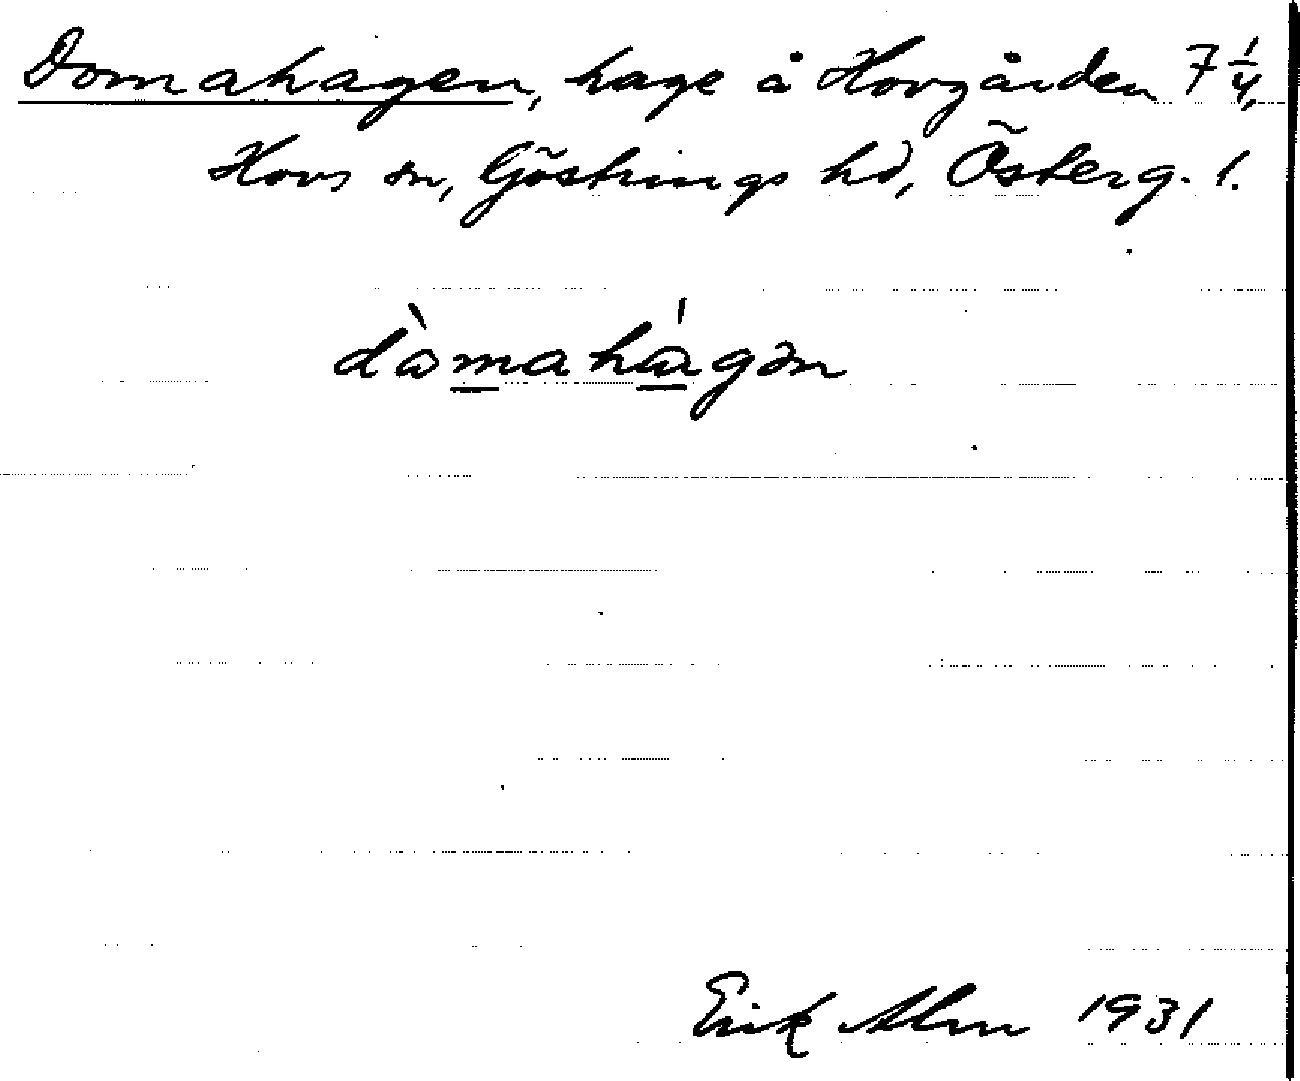 Domahagen, hage å Hovgården 7 1/4,
Hovs sn, Göstrings hd, Österg. l.
dåmahagən
Erik Alm 1931